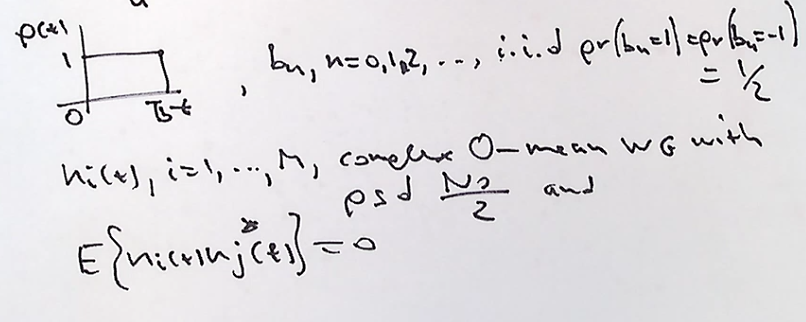 p(t)
1
0 Tb t
, bn, n=0,1,2, ..., i.i.d pr(bn=1)=pr(bn=-1)
= 1/2
ni(t), i=1, ..., M, complex 0-mean WG with
psd N0/2 and
E{ni(t)nj*(t)}=0